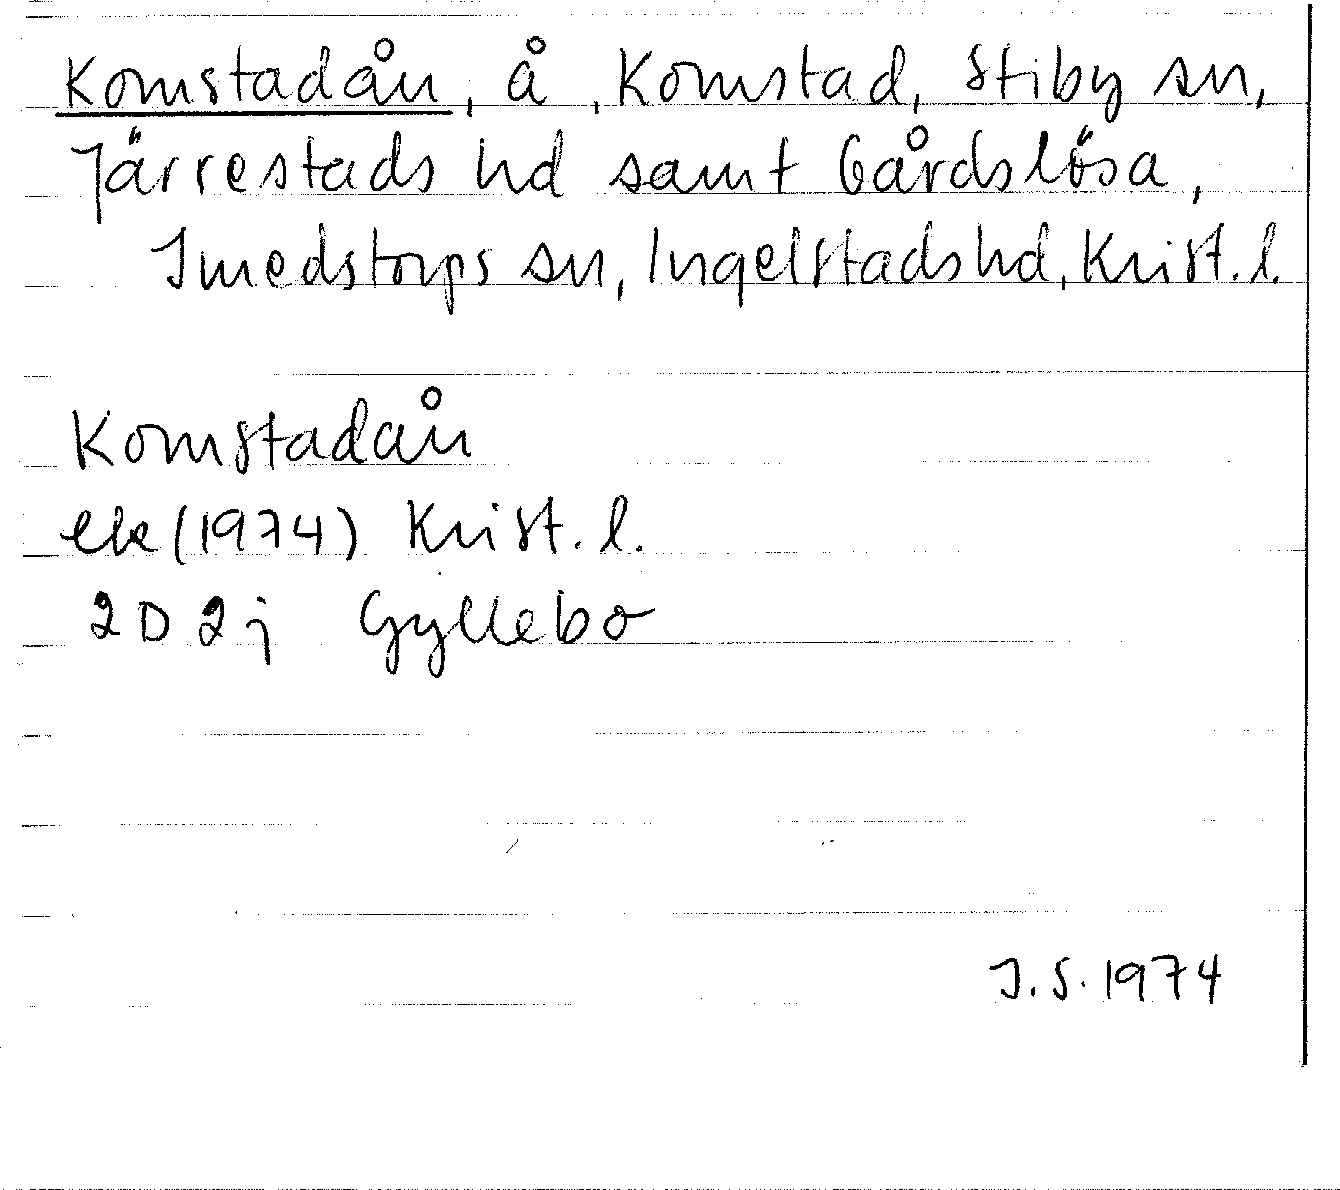 Komstadån, å, Komstad, Stiby sn,
Järrestads hd samt Gårdslösa,
Smedstorps sn, Ingelstads hd, Krist. l.
Komstadån
ek (1974) Krist. l.
2D 2j Gyllebo
J.S. 1974